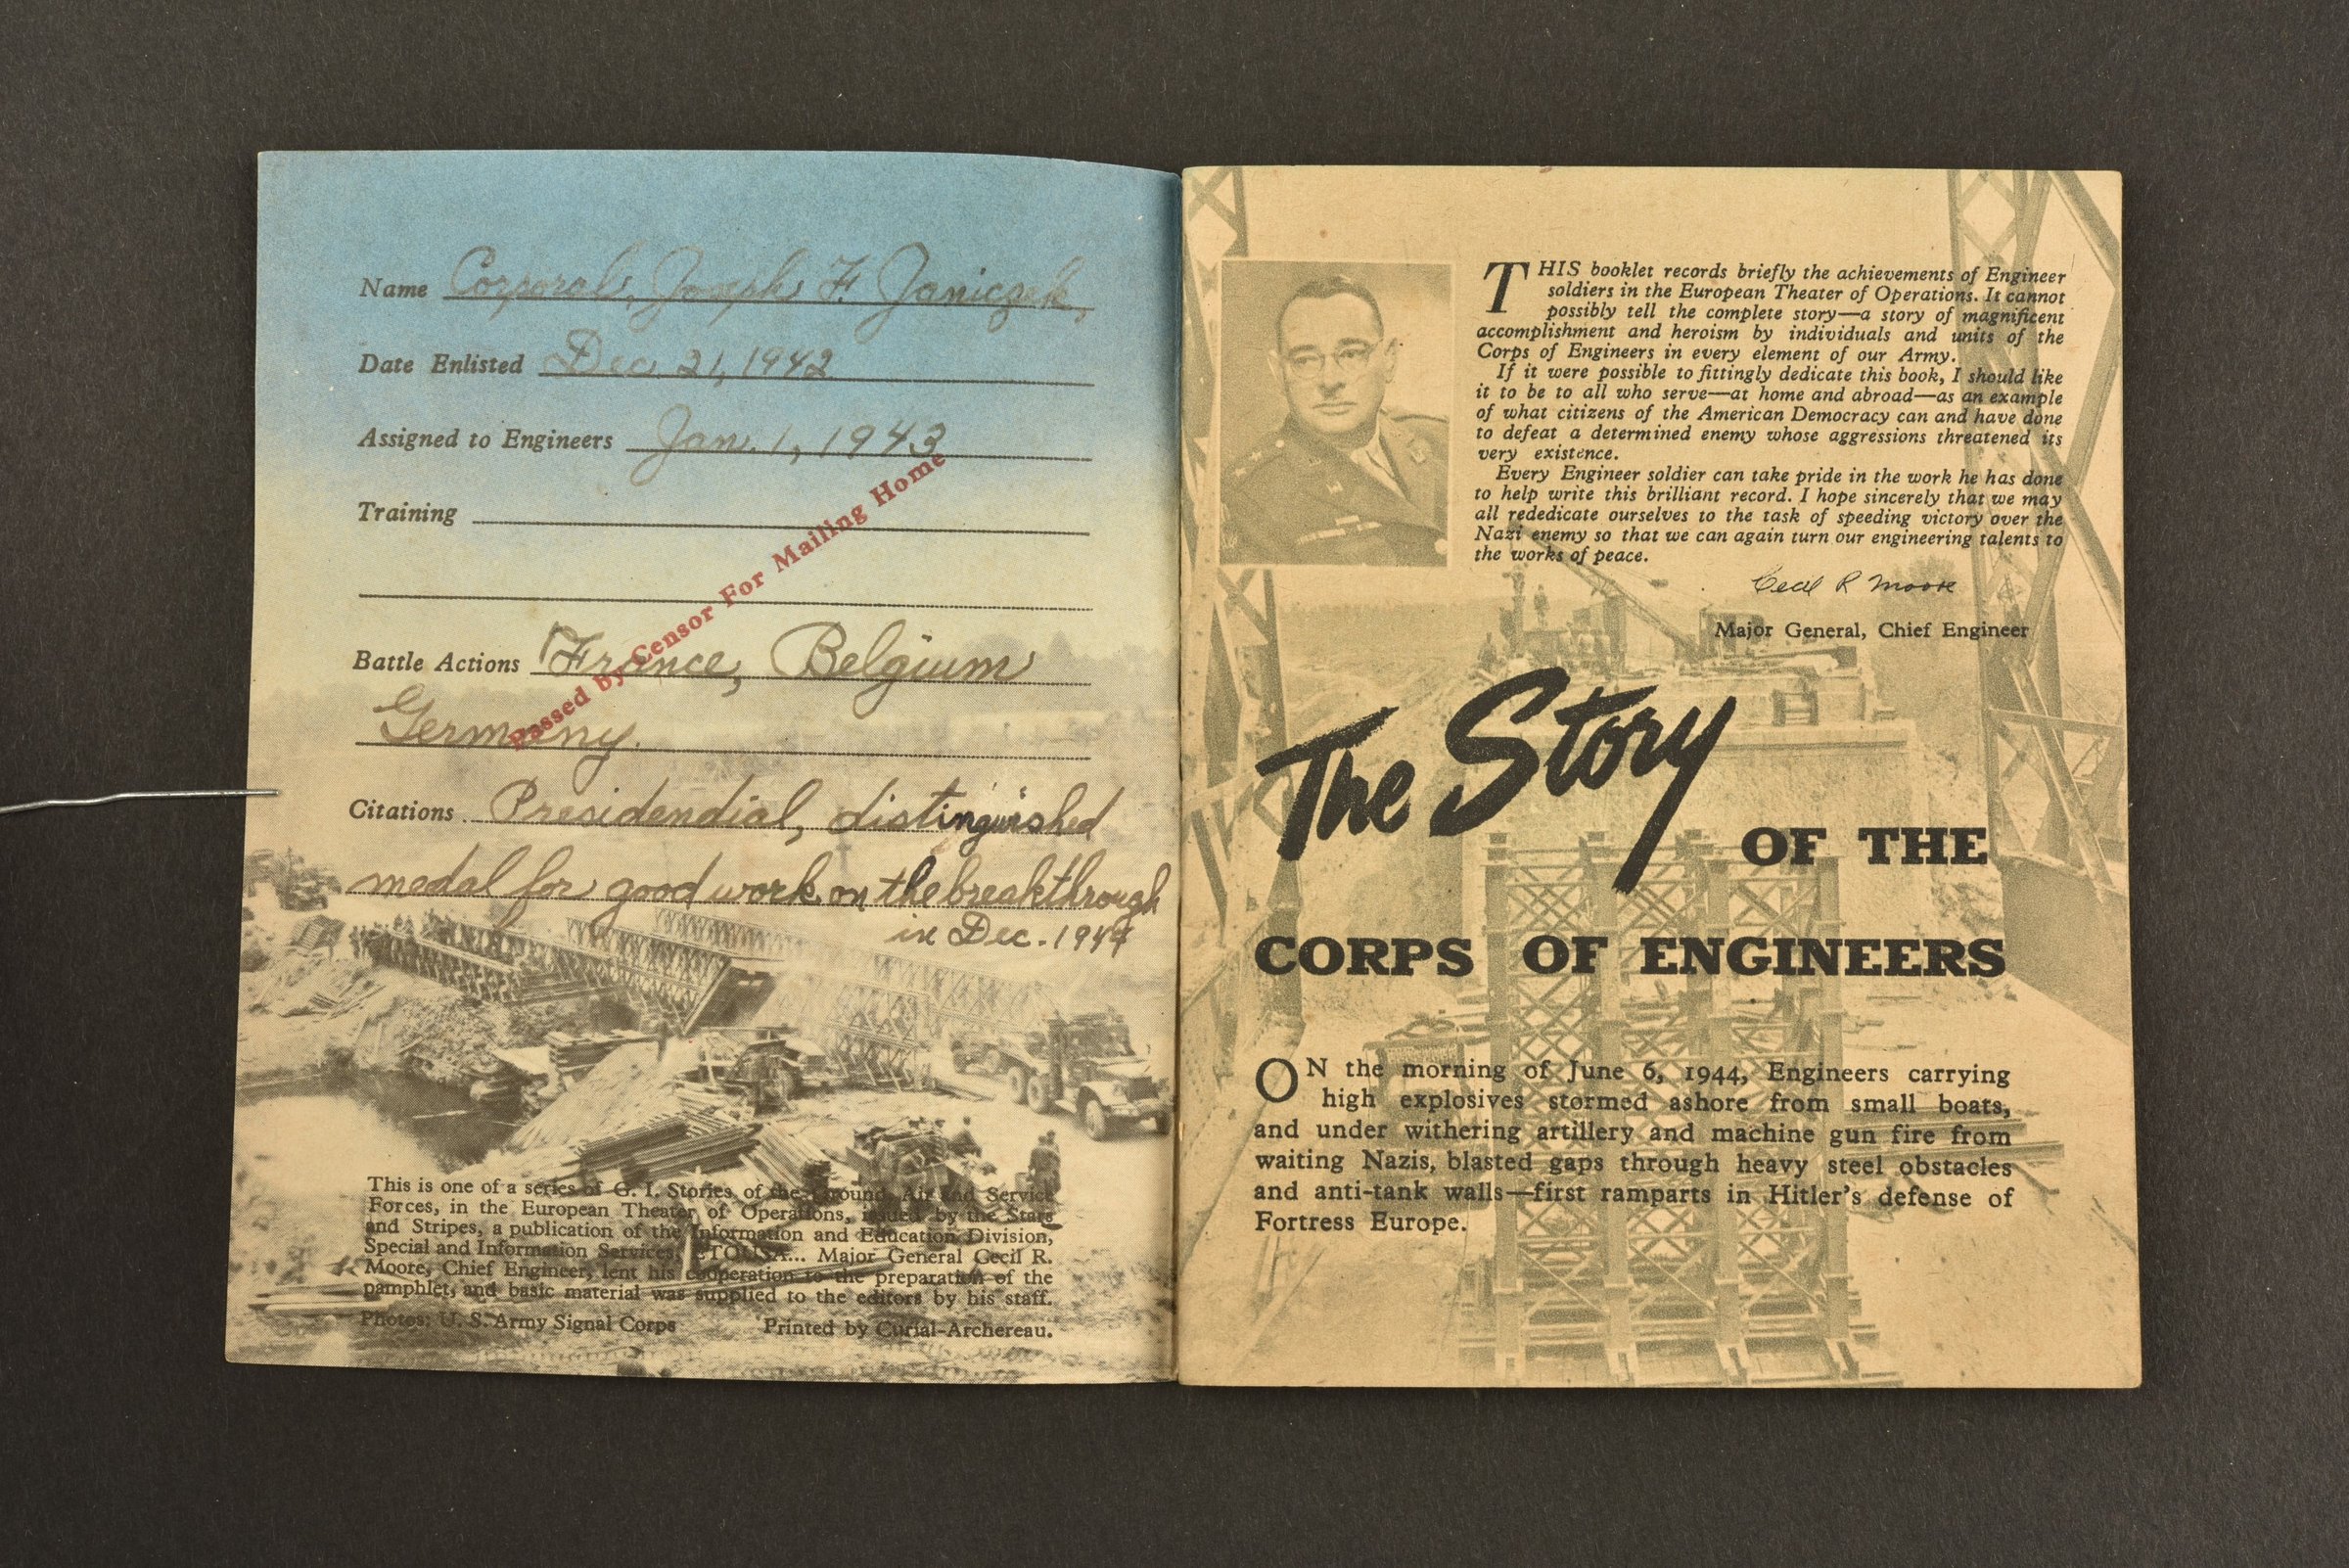 Name Corporal, Joseph F. Janiczek,
Date Enlisted Dec. 21, 1942
Assigned to Engineers Jan. 1, 1943
Training
Passed by Censor For Mailing Home
Battle Actions France, Belgium
Germany.
Citations Presidendial, distinguished
medal for good work on the breakthrough
in Dec. 1944
This is one of a series of G. I. Stories of the Ground, Air and Service
Forces, in the European Theater of Operations, issued by the Stars
and Stripes, a publication of the Information and Education Division,
Special and Information Services, ETOUSA... Major General Cecil R.
Moore, Chief Engineer, lent his cooperation to the preparation of the
pamphlet, and basic material was supplied to the editors by his staff.
Photos: U. S. Army Signal Corps Printed by Curial-Archereau.
THIS booklet records briefly the achievements of Engineer
soldiers in the European Theater of Operations. It cannot
possibly tell the complete story—a story of magnificent
accomplishment and heroism by individuals and units of the
Corps of Engineers in every element of our Army.
If it were possible to fittingly dedicate this book, I should like
it to be to all who serve—at home and abroad—as an example
of what citizens of the American Democracy can and have done
to defeat a determined enemy whose aggressions threatened its
very existence.
Every Engineer soldier can take pride in the work he has done
to help write this brilliant record. I hope sincerely that we may
all rededicate ourselves to the task of speeding victory over the
Nazi enemy so that we can again turn our engineering talents to
the works of peace.
Cecil R Moore
Major General, Chief Engineer
The Story
OF THE
CORPS OF ENGINEERS
ON the morning of June 6, 1944, Engineers carrying
high explosives stormed ashore from small boats,
and under withering artillery and machine gun fire from
waiting Nazis, blasted gaps through heavy steel obstacles
and anti-tank walls—first ramparts in Hitler's defense of
Fortress Europe.